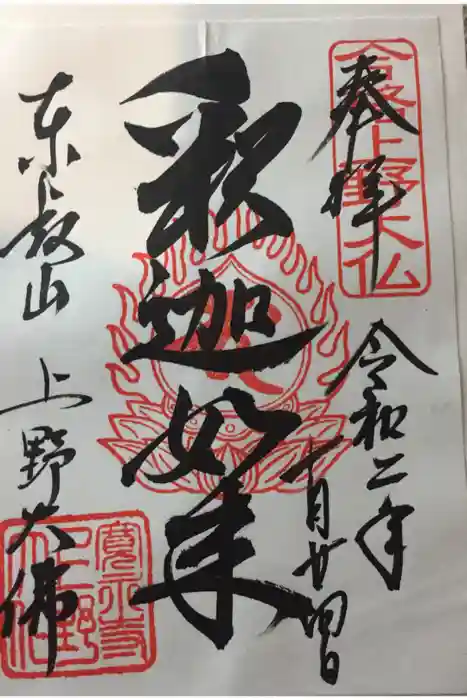 奉拝
合格上野大仏
令和二年
十月廿四日
釈迦如来
東叡山 上野大佛
寛永寺
上野
大仏